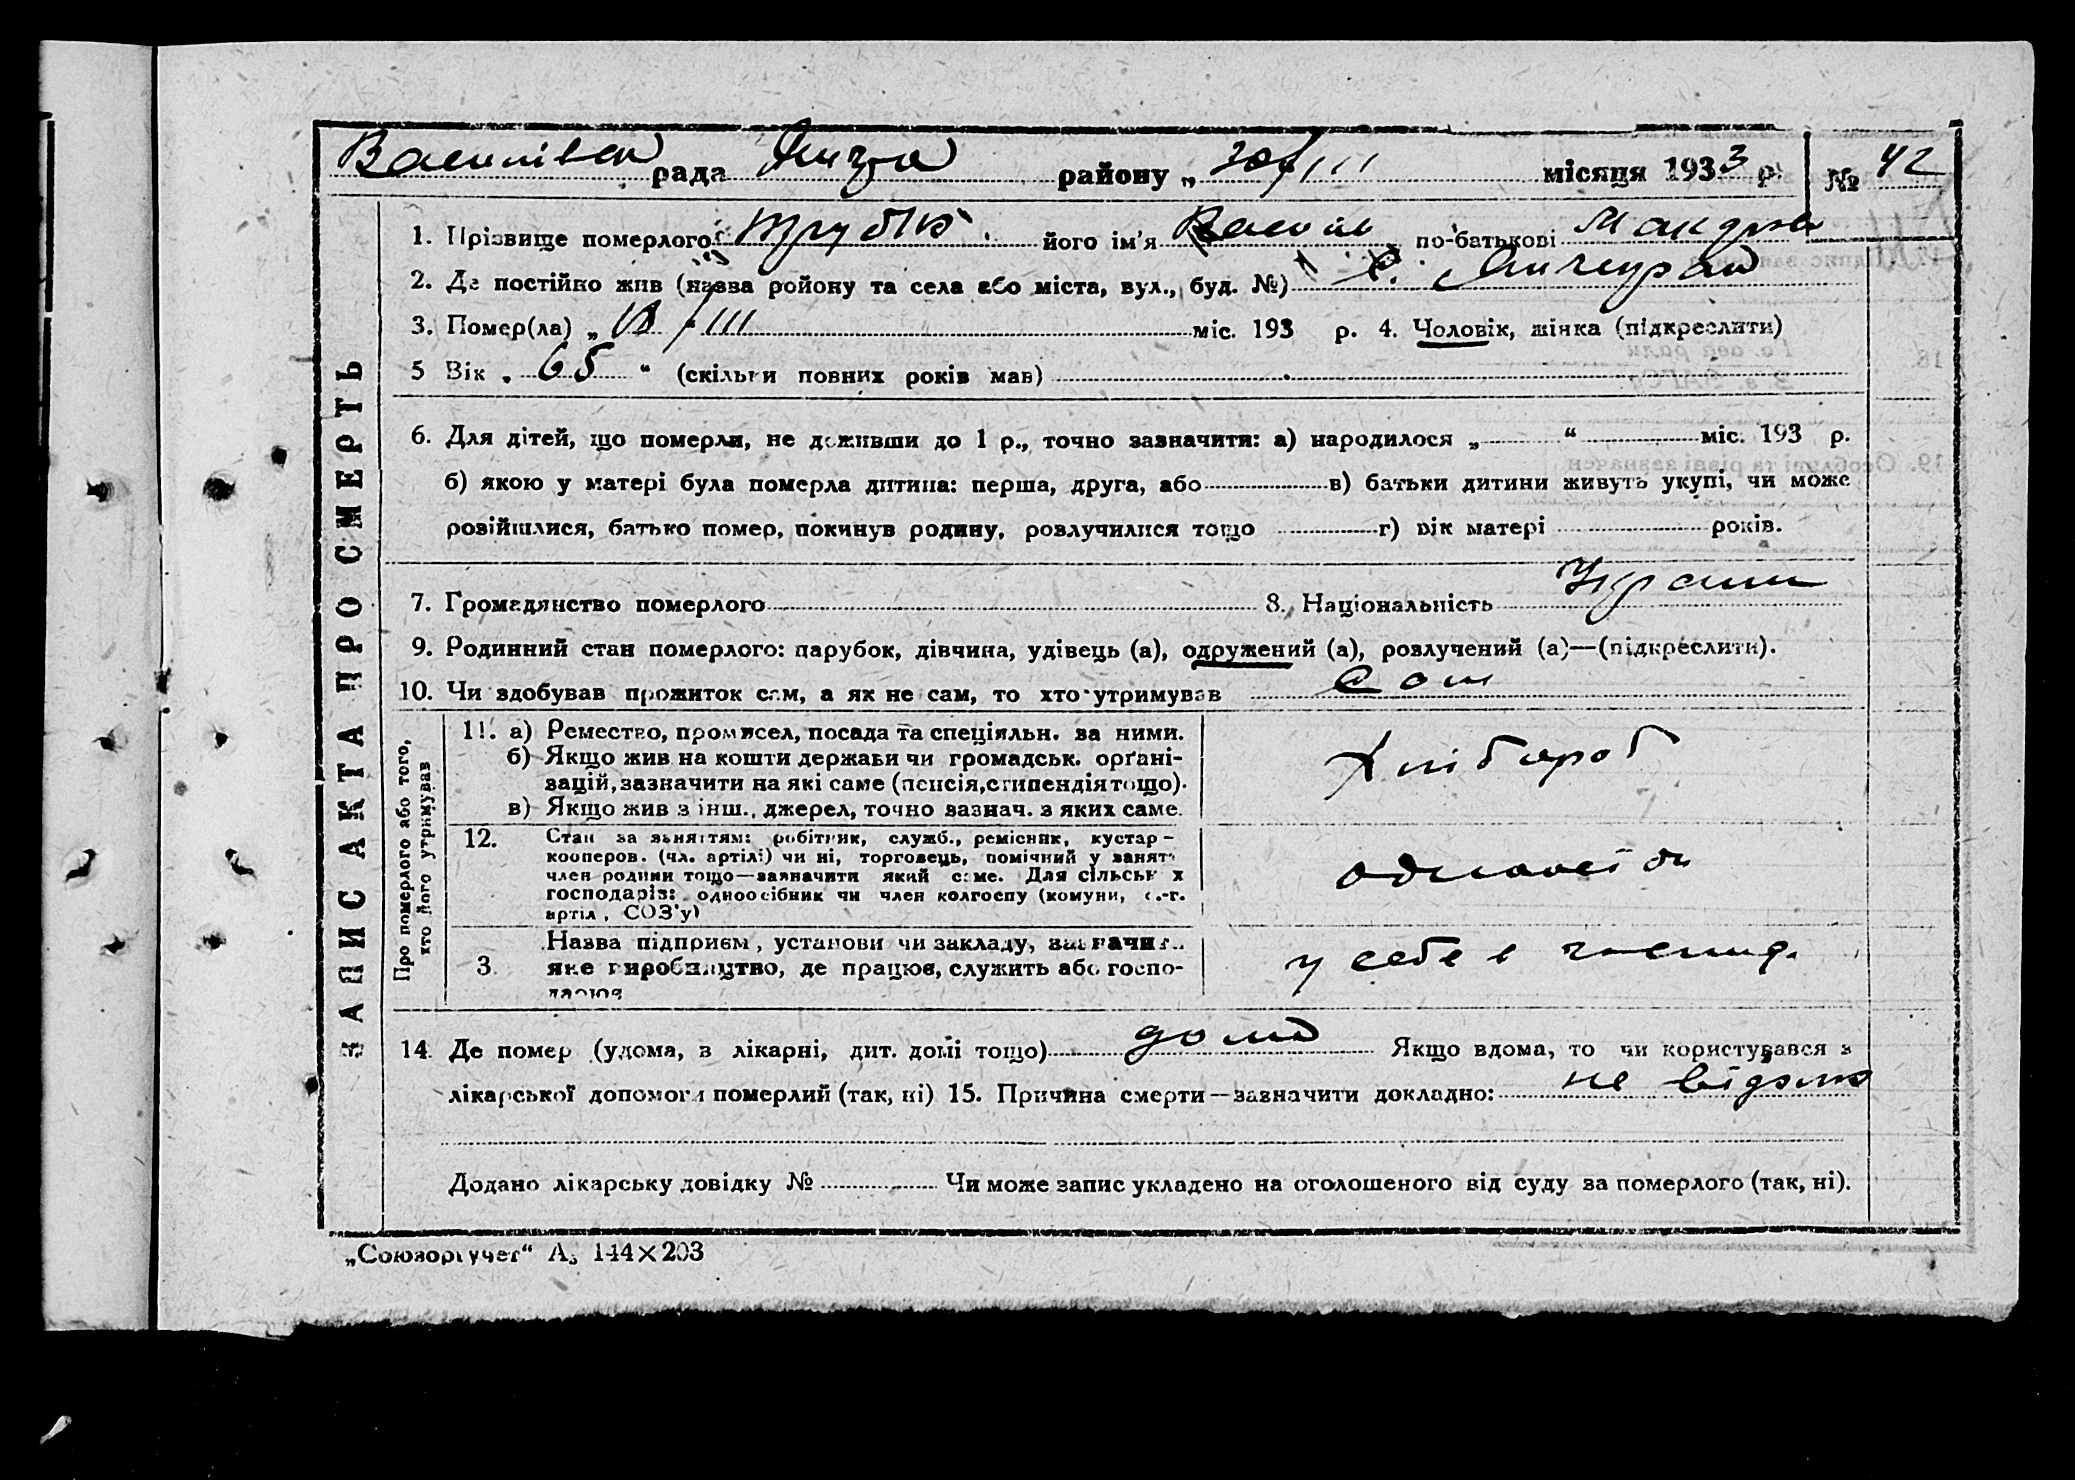 Василівск рада району „ 30/III місяця 1933 р. № 42
ЗАПИС АКТА ПРО СМЕРТЬ
1. Прізвище померлого його ім'я Василь по-батькові
2. Де постійно жив (назва району та села або міста, вул., буд. №) с.
3. Помер(ла) „ /III міс. 193 р. 4. Чоловік, жінка (підкреслити)
5 Вік „ 65 “ (скільки повних років мав)
6. Для дітей, що померли, не доживши до 1 р., точно зазначити: а) народилося „ “ міс. 193 р.
б) якою у матері була померла дитина: перша, друга, або в) батьки дитини живуть укупі, чи може
розійшлися, батько помер, покинув родину, розлучилися тощо г) вік матері років.
7. Громадянство померлого 8. Національність Україн
9. Родинний стан померлого: парубок, дівчина, удівець (а), одружений (а), розлучений (а)—(підкреслити).
10. Чи здобував прожиток сам, а як не сам, то хто утримував Сам
Про померлого або того, хто його утримував
11. а) Ремество, промисел, посада та спеціяльн. за ними.
б) Якщо жив на кошти держави чи громадськ. орґані-
зацій, зазначити на які саме (пенсія, стипендія тощо).
в) Якщо жив з інш., джерел, точно зазнач. з яких саме.
Хлібороб
12. Стан за заняттям: робітник, служб., ремісник, кустар -
кооперов. (чл. артілі) чи ні, торговець, помічний у занят.
член родини тощо—зазначити який саме. Для сільськ х
господарів: одноосібник чи член колгоспу (комуни, с.-г.
артіл , СОЗ'у)
одноосібн
3. Назва підприєм , установи чи закладу, зазначит..
яке виробництво, де працює, служить або госпо-
дарює
у себе в господ.
14. Де помер (удома, в лікарні, дит. домі тощо) дома Якщо вдома, то чи користувався з
лікарської допомоги померлий (так, ні) 15. Причина смерти—зазначити докладно: не відомо
Додано лікарську довідку № Чи може запис укладено на оголошеного від суду за померлого (так, ні).
„Союзоргучет“ А5 144×203